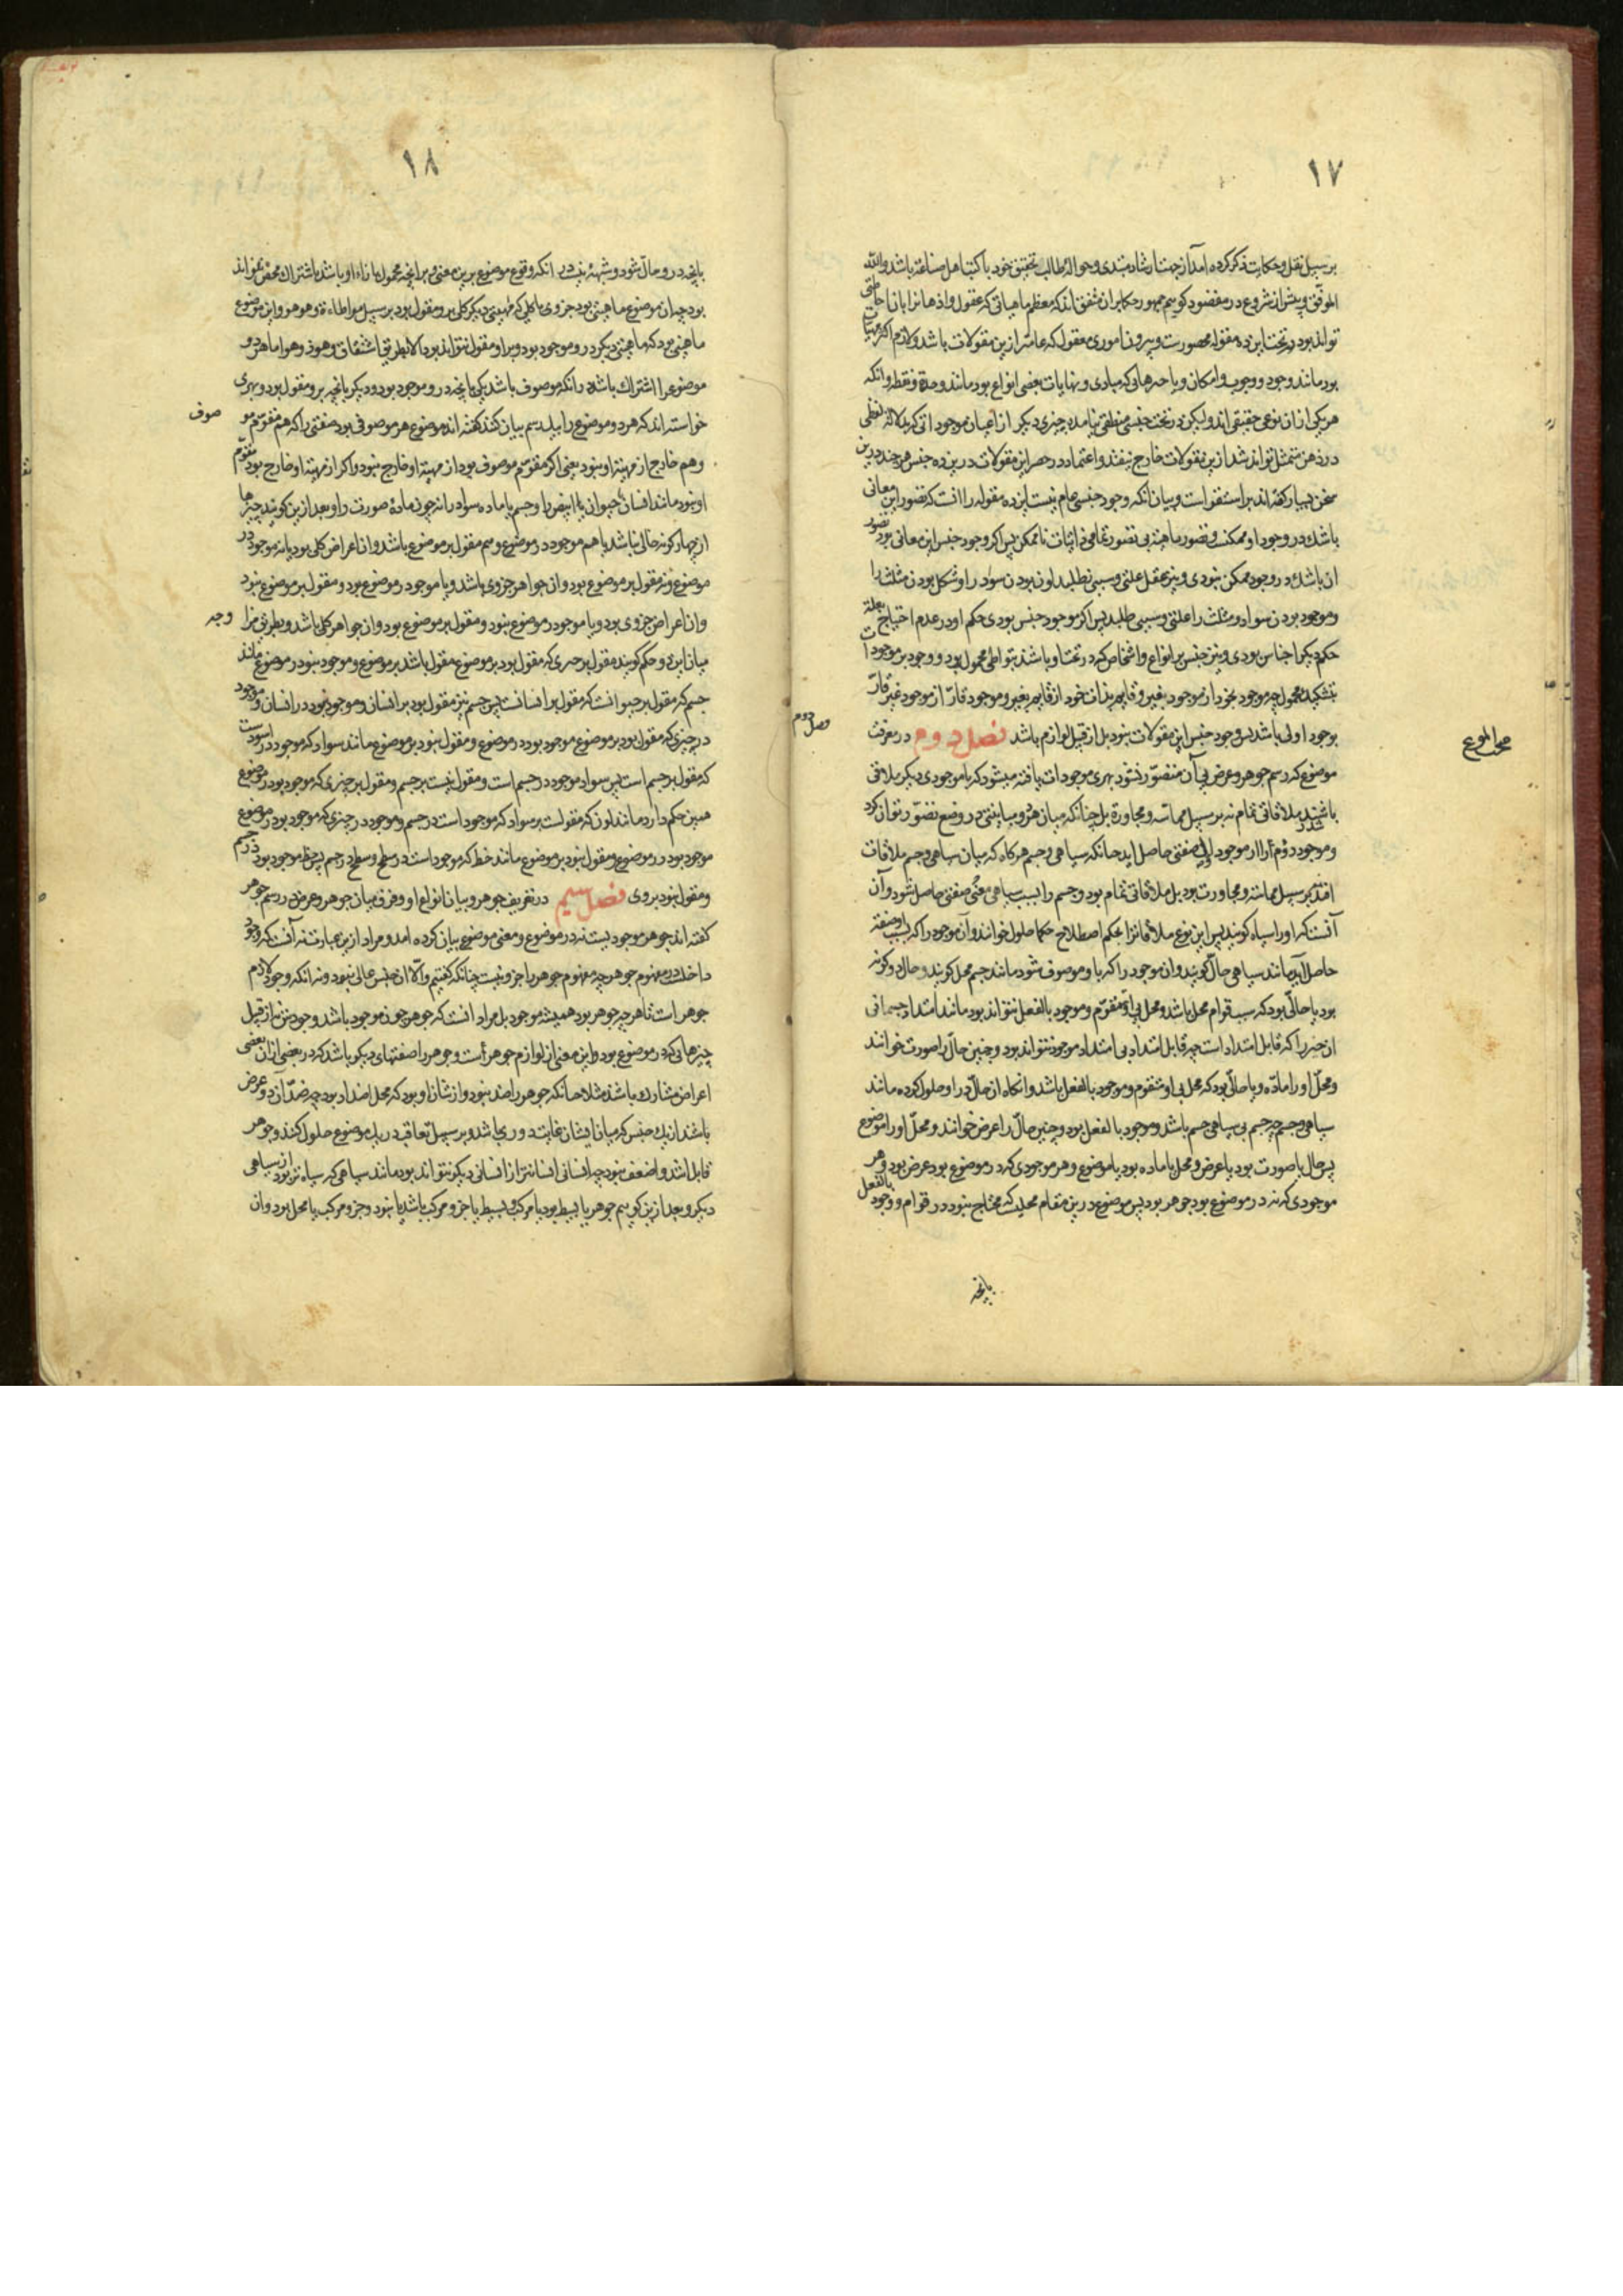 ١٧
بر سبیل نقل و حکایت ذکر کرده آمد از جهت ارشاد مبتدی و حواله طالب تحقیق خود با کتب اهل صناعة باشد والله
الموفق و پیش از شروع در مقصود کوییم جمهور حکما بر ان متفق اند که معظم ماهیاتی که عقول و اذهانرا بان احاطتی
تواند بود در تحت این ده مقوله محصورست و بیرون اموری معقول که عامتر ازین مقولات باشد و لازم اکثر مهیات
بود مانند وجود و وجوب و امکان و یا چیرهائی که مبادی و نهایات بعضی انواع بود مانند وحدة و نقطه و انکه
هر یکی از ان نوعی حقیقی اند ولیکن در تحت جنسی منطقی نیامده چیزی دیکر از اعیان موجوداتی که بدلالة لفظی
در ذهن متمثل تواند شد ازین مقولات خارج نیفتد و اعتماد در حصر این مقولات درین ده جنس هر چند درین
سخن بسیار کفته اند بر استقراست و بیان انکه وجود جنسی عام نیست این ده مقوله را انست که تصور این معانی
باشک در وجود او ممکنست و تصور ماهیة بی تصور تمامی ذاتیات ناممکن پس اکر وجود جنس این معانی بود تصور
ان باشک در وجود ممکن نبودی و نیز عقل علتی و سببی نطلبد لون بودن سواد را و شکل بودن مثلث را
و موجود بودن سواد و مثلث را علتی و سببی طلبد پس اکر موجود جنس بودی حکم او در عدم احتیاج بعلة
حکم دیکر اجناس بودی و نیز جنس بر انواع و اشخاص که در تحت او باشند بتواطی محمول بود و وجود بر موجودات
بتشکیک محمول چه موجود بخود از موجود بغیر و قایم بذات خود از قایم بغیر و موجود قارّ از موجود غیر قارّ
بوجود اولی باشد پس وجود جنس این مقولات نبود بل از قبیل لوازم باشد فصل دوم در معرفت
موضوع که رسم جوهر و عرض بی آن متصوّر نشود بهری موجودات یافته میشود که با موجودی دیکر ملاقی
باشند ملاقاتی تمام نه بر سبیل مماسّه و مجاورة بل چنانکه میان هر دو مباینتی در وضع تصوّر نتوان کرد
و موجود دوم را از موجود اول صفتی حاصل اید چنانکه سیاهی و جسم هر کاه که میان سیاهی و جسم ملاقات
افتد بر سبیل مماسّه و مجاورت بود بل ملاقاتی تمام بود و جسم را بسبب سیاهی صفتی حاصل شود و آن
آنست که او را سیاه کویند پس این نوع ملاقاترا بحکم اصطلاح حکما حلول خوانند و آن موجود را که بسبب او صفة
حاصل آید مانند سیاهی حالّ کویند و ان موجود را که باو موصوف شود مانند جسم محل کویند و حال دو کونه
بود یا حالّی بود که سبب قوام محل باشد و محل بی او متقوّم و موجود بالفعل نتواند بود مانند امتداد جسمانی
ان چیز را که قابل امتداد است چه قابل امتداد بی امتداد موجود نتواند بود و چنین حالّ را صورت خوانند
و محلّ او را مادّه و یا حالّی بود که محل بی او متقوم و موجود بالفعل باشد و انکاه ان حالّ در او حلول کرده مانند
سیاهی و جسم چه جسم بی سیاهی جسم باشد و موجود بالفعل بود و چنین حالّ را عرض خوانند و محلّ او را موضوع
پس حال یا صورت بود یا عرض و محل یا ماده بود یا موضوع و هر موجودی که در موضوع بود عرض بود و هر
موجودی که نه در موضوع بود جوهر بود پس موضوع درین مقام محلیست که محتاج نبود در قوام و وجود بالفعل
بانچه
١٨
بانچه درو حالّ شود و شبهة نیست در انکه وقوع موضوع برین معنی و بر انچه محمول بازاء او باشد باشتراك محض تواند
بود چه ان موضوع ماهیتی بود جزوی یا کلی که طبیعتی دیکر کلی برو مقول بود بر سبیل مواطاءة و هو هو و این موضوع
ماهیتی بود که ماهیتی دیکر درو موجود بود و برو مقول نتواند بود الا بطریق اشتقاق و هوذو هو اما هر دو
موضوع را اشتراك باشد در انکه موصوف باشد یکی بانچه درو موجود بود و دیکر بانچه برو مقول بود و بهری
خواسته اند که هر دو موضوع را بیك رسم بیان کنند کفته اند موضوع هر موصوفی بود صفتی را که هم مقوّم مو
صوف
وهم خارج از مهیة او نبود یعنی اکر مقوّم موصوف بود از مهیة او خارج نبود و اکر از مهیة او خارج بود مقوّم
او نبود مانند انسان حیوان یا ابیض را و جسم یا ماده سواد را نه چون ماده صورت را و بعد ازین کویند چیزها
از چهار کونه خالی نباشد یا هم موجود در موضوع و هم مقول بر موضوع باشد و ان اعراض کلی بود یا نه موجود در
موضوع و نه مقول بر موضوع بود و ان جواهر جزوی باشد و یا موجود در موضوع بود و مقول بر موضوع نبود
و ان اعراض جزوی بود و یا موجود در موضوع نبود و مقول بر موضوع بود و ان جواهر کلی باشد و بطریق مزا
وجه
میان این دو حکم کویند مقول بر چیزی که مقول بود بر موضوع مقول باشد بر موضوع و موجود نبود در موضوع مانند
جسم که مقول بر حیوانست که مقول بر انسانست پس جسم نیز مقول بود بر انسان و موجود نبود در انسان و موجود
در چیزی که مقول بود بر موضوع موجود بود در موضوع و مقول نبود بر موضوع مانند سواد که موجود در اسودست
که مقول بر جسم است پس سواد موجود در جسم است و مقول نیست بر جسم و مقول بر چیزی که موجود بود در موضوع
همین حکم دارد مانند لون که مقولست بر سواد که موجود است در جسم و موجود در چیزی که موجود بود در موضوع
موجود بود در موضوع و مقول نبود بر موضوع مانند خط که موجود است در سطح و سطح در جسم پس خط موجود بود در جسم
و مقول نبود بروی فصل سیم در تعریف جوهر و بیان انواع او و فرق میان جوهر و عرض در رسم جوهر
کفته اند جوهر موجود یست نه در موضوع و معنی موضوع بیان کرده امد و مراد ازین عبارت نه آنست که وجود
داخلست در مفهوم جوهر چه مفهوم جوهر را جزو نیست چنانکه کفتیم و الّا ان جنس عالی نبود و نه انکه وجود لازم
جوهر است تا هر چه جوهر بود همیشه موجود بل مراد انست که جوهر چون موجود باشد وجودش نه از قبیل
چیزهائی که در موضوع بود و این معنی از لوازم جوهر است و جوهر را صفتهای دیکر باشد که در بعضی ازان بعضی
اعراض مشارك باشند مثلا چنانکه جوهر را ضد نبود و از شان او بود که محل اضداد بود چه ضدّ آن دو عرض
باشند از یك جنس که میان ایشان غایت دوری باشد و بر سبیل تعاقب در یك موضوع حلول کنند و جوهر
قابل اشد و اضعف نبود چه انسانی انسانتر از انسانی دیکر نتواند بود مانند سیاهی که سیاه تر بود از سیاهی
دیکر و بعد ازین کوییم جوهر یا بسیط بود یا مرکب و بسیط یا جزو مرکب باشد یا نبود و جزو مرکب یا محل بود و ان